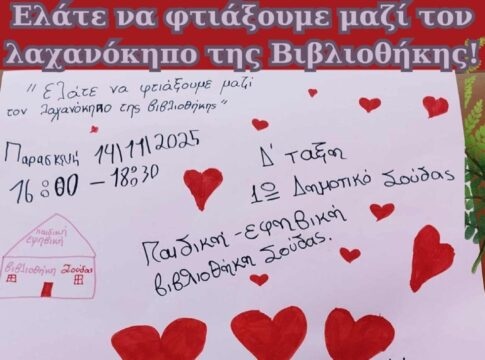 Ελάτε να φτιάξουμε μαζί τον
λαχανόκηπο της Βιβλιοθήκης!
"Ελάτε να φτιάξουμε μαζί
τον λαχανόκηπο της βιβλιοθήκης"
Παρασκευή 14/11/2025
16:00 - 18:30
Δ' τάξη
1ο Δημοτικό Σούδας
Παιδική - εφηβική
βιβλιοθήκη Σούδας.
παιδική
εφηβική
βιβλιοθήκη Σούδας